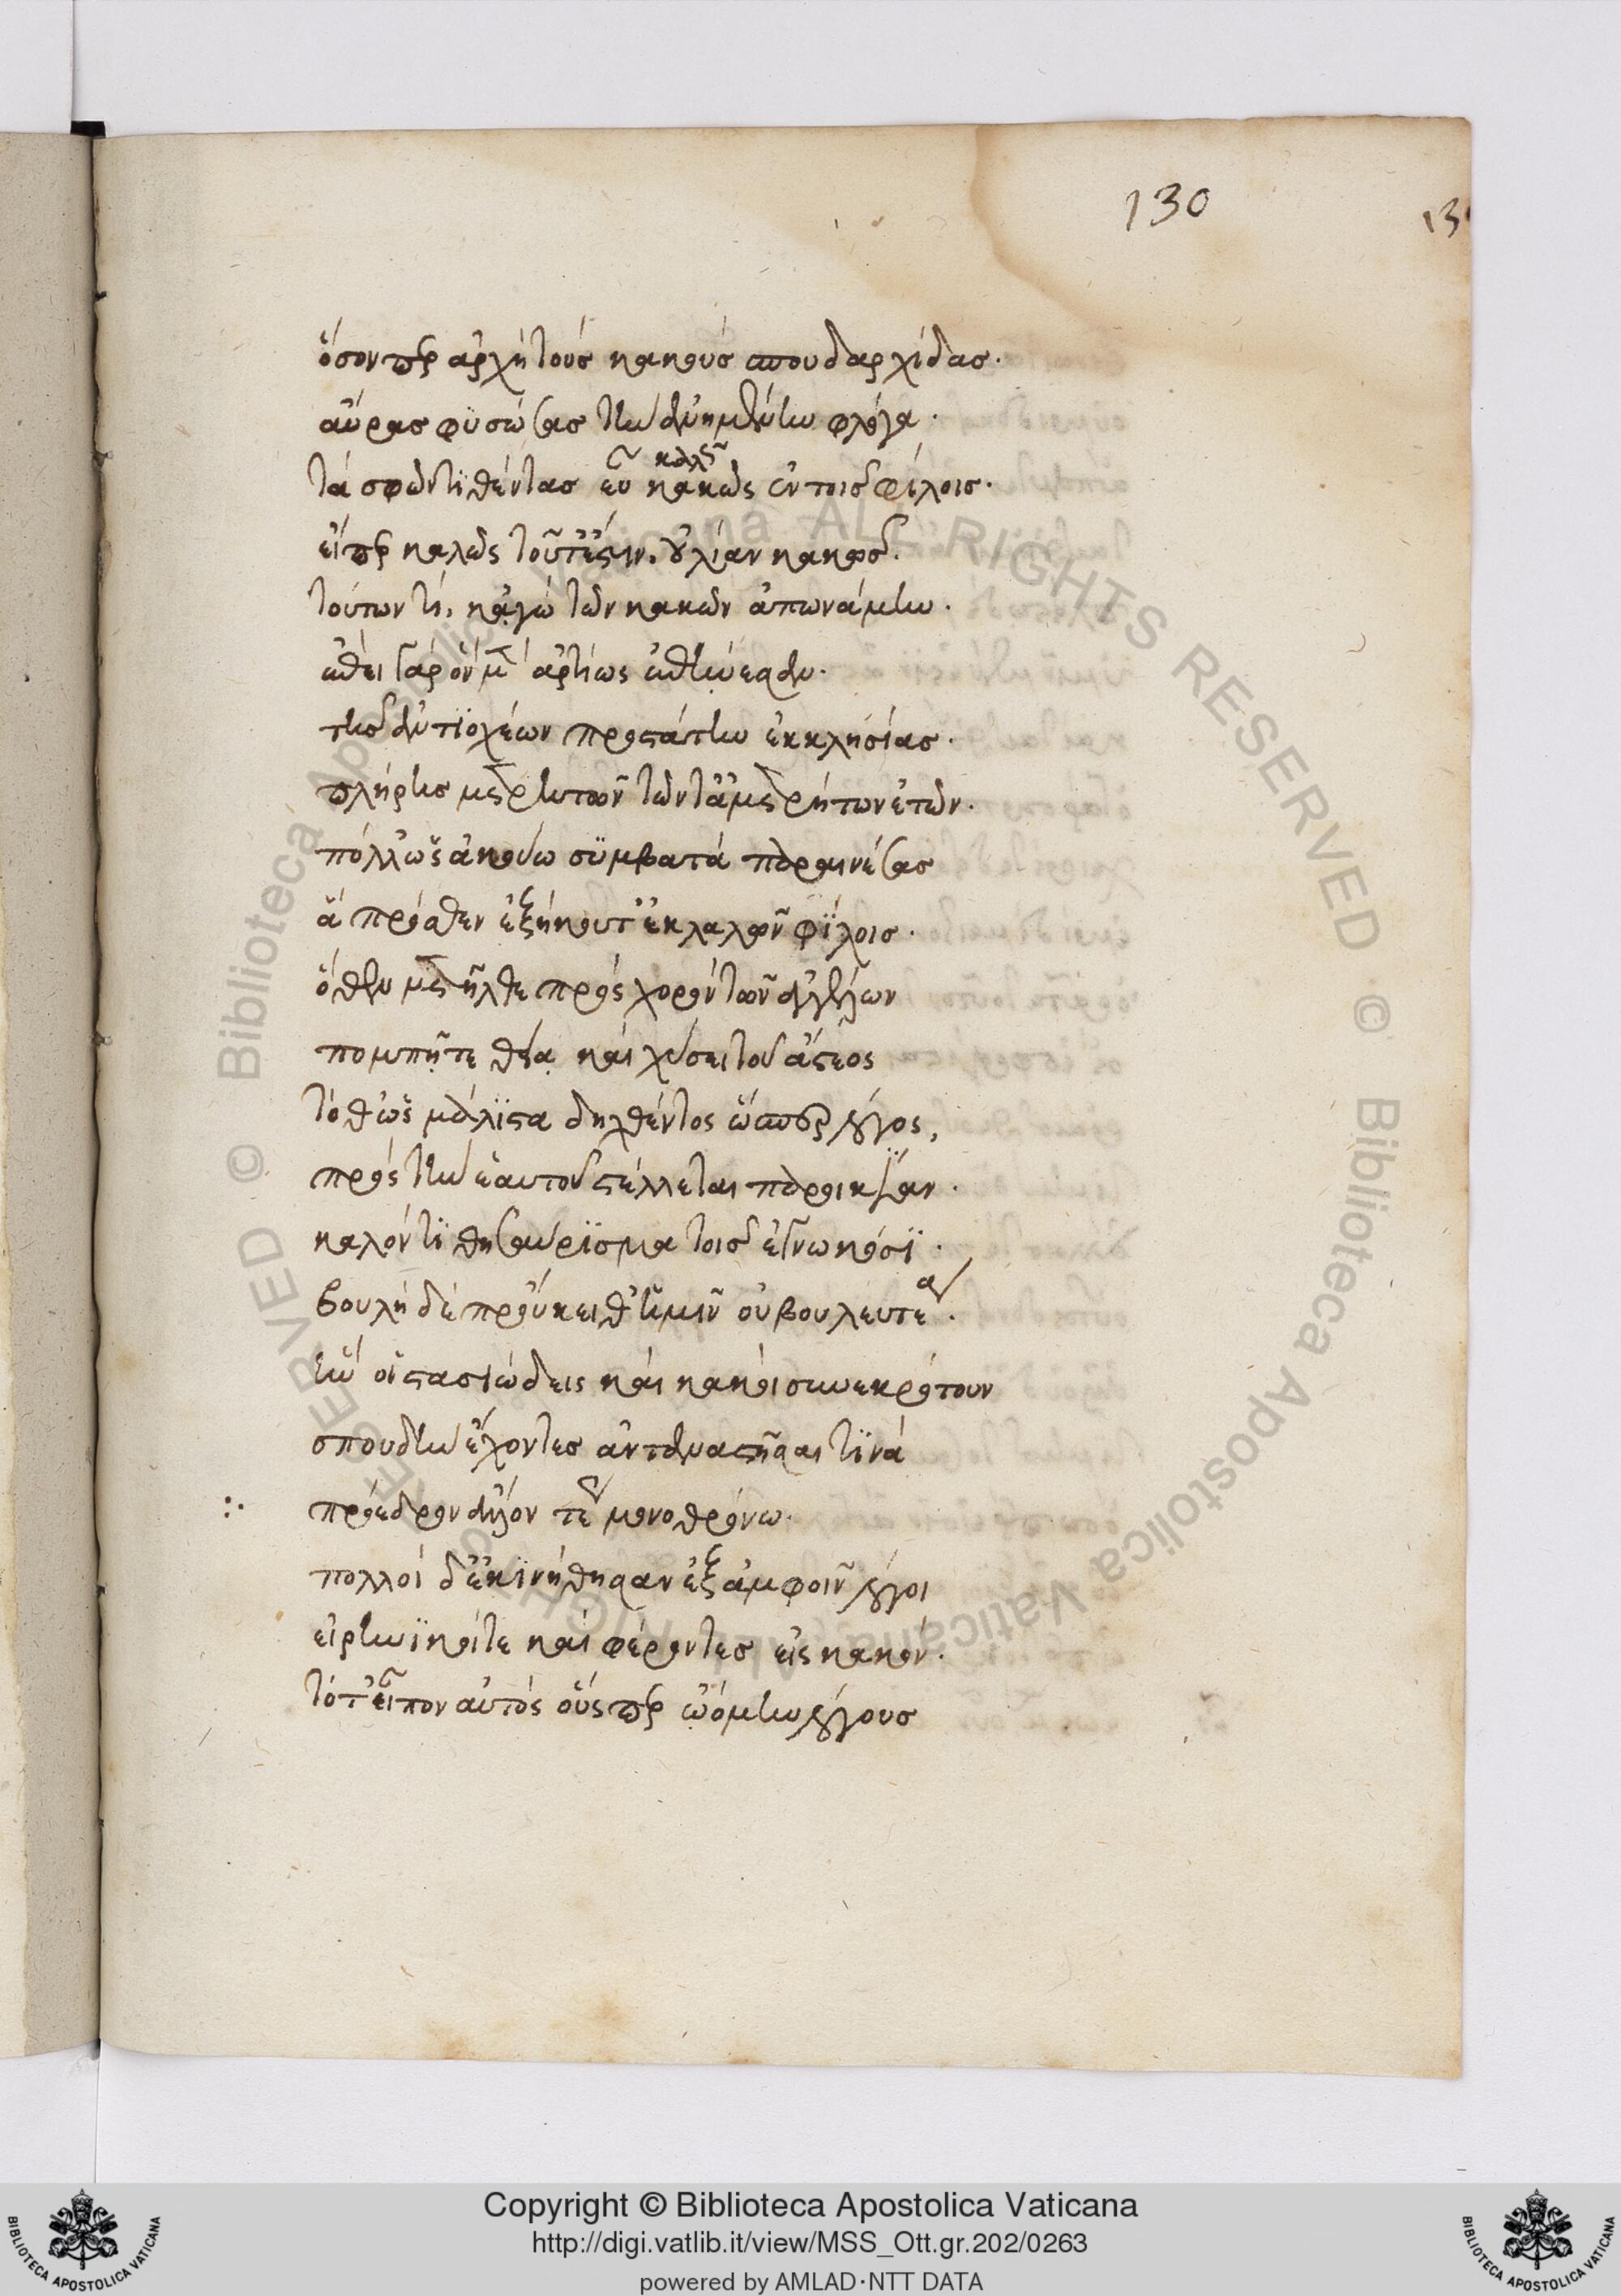 130
13
ὅσονπερ ἀρχὴ τοὺς κακοὺς σπουδαρχίδας.
αὔρας φυσώσας τὴν ἀνημμένην φλόγα.
τὰ σφῶν τιθέντας εὖ κακῶς ἐν τοῖς φίλοις.
καλῶς
εἴπερ καλῶς τοῦτ' ἐστιν. οὐ λίαν κακοῖς.
τούτων τί, κἀγὼ τῶν κακῶν ἀπωνάμην.
ὤθει γὰρ ὃν μὲν ἀρτίως ὠθήνεσαν.
τῆς ἀντιοχέων προστάτην ἐκκλησίας.
πλήρης μὲν ἐτῶν τῶν τ' ἀμετρήτων ἐτῶν.
πόλλ' ὡς ἀκούω σύμβατα παραινέσας
ἃ πρόσθεν ἐξήκουστ' ἐκλαλῶν φίλοις.
ὅθεν μετῆλθε πρὸς χορὸν τῶν ἀγγέλων
πομπῇ τε θείᾳ καὶ χύσει τοῦ ἄστεος
τό θ' ὡς μάλιστα δηχθέντος ὥσπερ λόγος,
πρὸς τὴν ἑαυτοῦ στέλλεται παροικίαν.
καλόν τι θησαύρισμα τοῖς ἐγνωκόσι.
βουλὴ δὲ προὔκειθ' ἡμῖν οὐ βουλευτέα.
ἣν οἱ στασιώδεις καὶ κακοὶ συνεκρότουν
σπουδὴν ἔχοντες ἀνταναστῆσαι τινὰ
πρόεδρον ἄλλον τῷ μονοθρόνῳ.
πολλοὶ δ' ἐκινήθησαν ἐξ ἀμφοῖν λόγοι
εἰρηνικοί τε καὶ φέροντες εἰς κακόν.
τότ' εἶπον αὐτὸς οὕσπερ ᾠόμην λόγους
Copyright © Biblioteca Apostolica Vaticana
http://digi.vatlib.it/view/MSS_Ott.gr.202/0263
powered by AMLAD·NTT DATA
BIBLIOTECA APOSTOLICA VATICANA
BIBLIOTECA APOSTOLICA VATICANA
© Biblioteca Apostolica Vaticana ALL RIGHTS RESERVED © Biblioteca Apostolica Vaticana ALL RIGHTS RESERVED